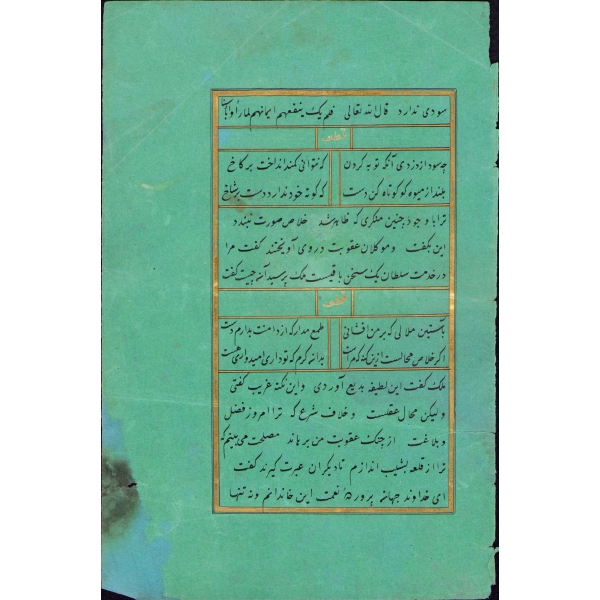 سودی ندارد قال الله تعالی فلم یک ینفعهم ایمانهم لما رأوا بأسنا
قطعه
چه سود از دزدی آنگه توبه کردن که نتوانی کمند انداخت بر کاخ
بلند از میوه گو کوتاه کن دست که کوته خود ندارد دست بر شاخ
ترا با وجود چنین منکری که ظاهر شد خلاص صورت نبندد
این بگفت و موکلان عقوبت در وی آویختند گفت مرا
در خدمت سلطان یک سخن باقیست ملک پرسید آن چیست گفت
قطعه
بآستین ملالی که بر من افشانی طمع مدار که از دامنت بدارم دست
اگر خلاص محالست ازین گنه که مراست بدان کرم که تو داری امیدواری هست
ملک گفت این لطیفه بدیع آوردی و این نکته غریب گفتی
ولیکن محال عقلست و خلاف شرع که ترا امروز فضل
و بلاغت از چنگ عقوبت من برهاند مصلحت می بینم که
ترا از قلعه بشیب اندازم تا دیگران عبرت گیرند گفت
ای خداوند جهان پرورده نعمت این خاندانم و نه تنها